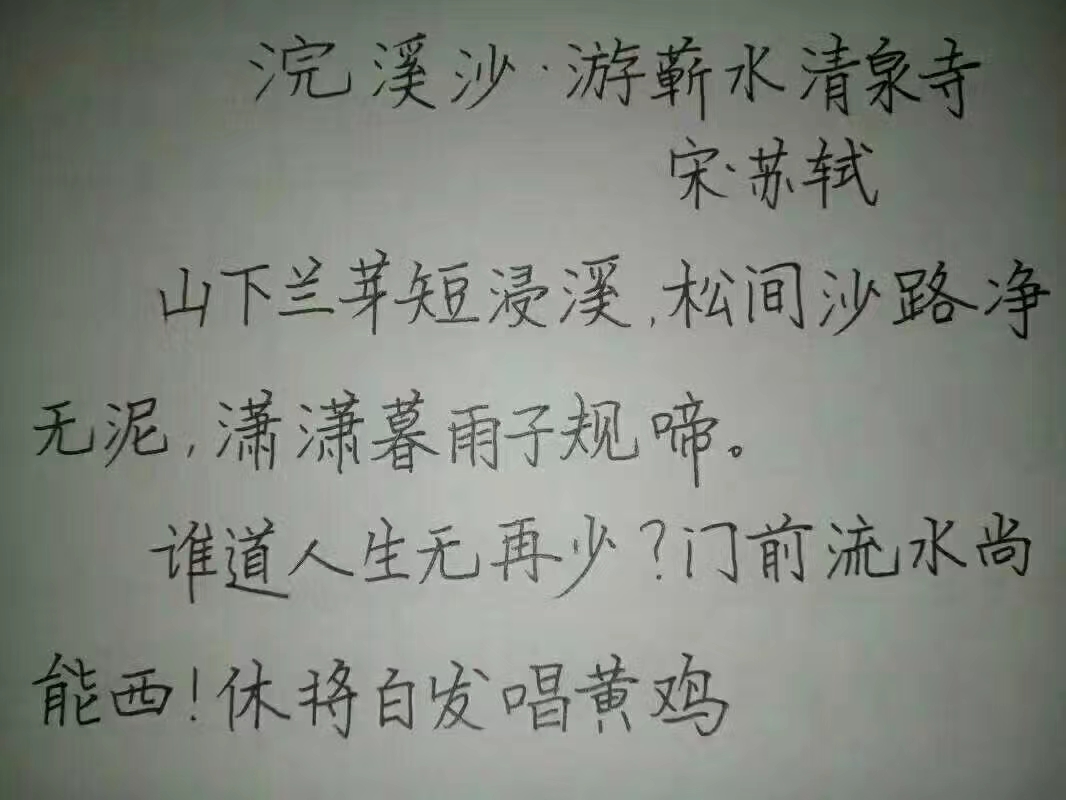 浣溪沙·游蕲水清泉寺
宋·苏轼
山下兰芽短浸溪,松间沙路净
无泥,潇潇暮雨子规啼。
谁道人生无再少?门前流水尚
能西!休将白发唱黄鸡